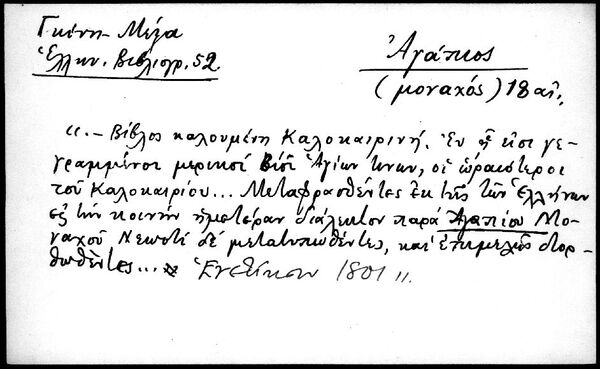 Γκίνη - Μέξα
Ἑλλην. Βιβλιογρ. 52
Ἀγάπιος
(μοναχός) 18 αἰ.
«.- Βίβλος καλουμένη Καλοκαιρινή. Ἐν ᾗ εἰσι γε-
γραμμένοι μερικοί Βίοι Ἁγίων τινων, οἱ ὡραιότεροι
τοῦ Καλοκαιρίου... Μεταφρασθέντες ἐκ τῆς τῶν Ἑλλήνων
εἰς τήν κοινήν ἡμετέραν διάλεκτον παρά Ἀγαπίου Μο-
ναχοῦ Νεωστί δέ μετατυπωθέντες, καί ἐπιμελῶς διορ-
θωθέντες... Ἐνετίησιν 1801».